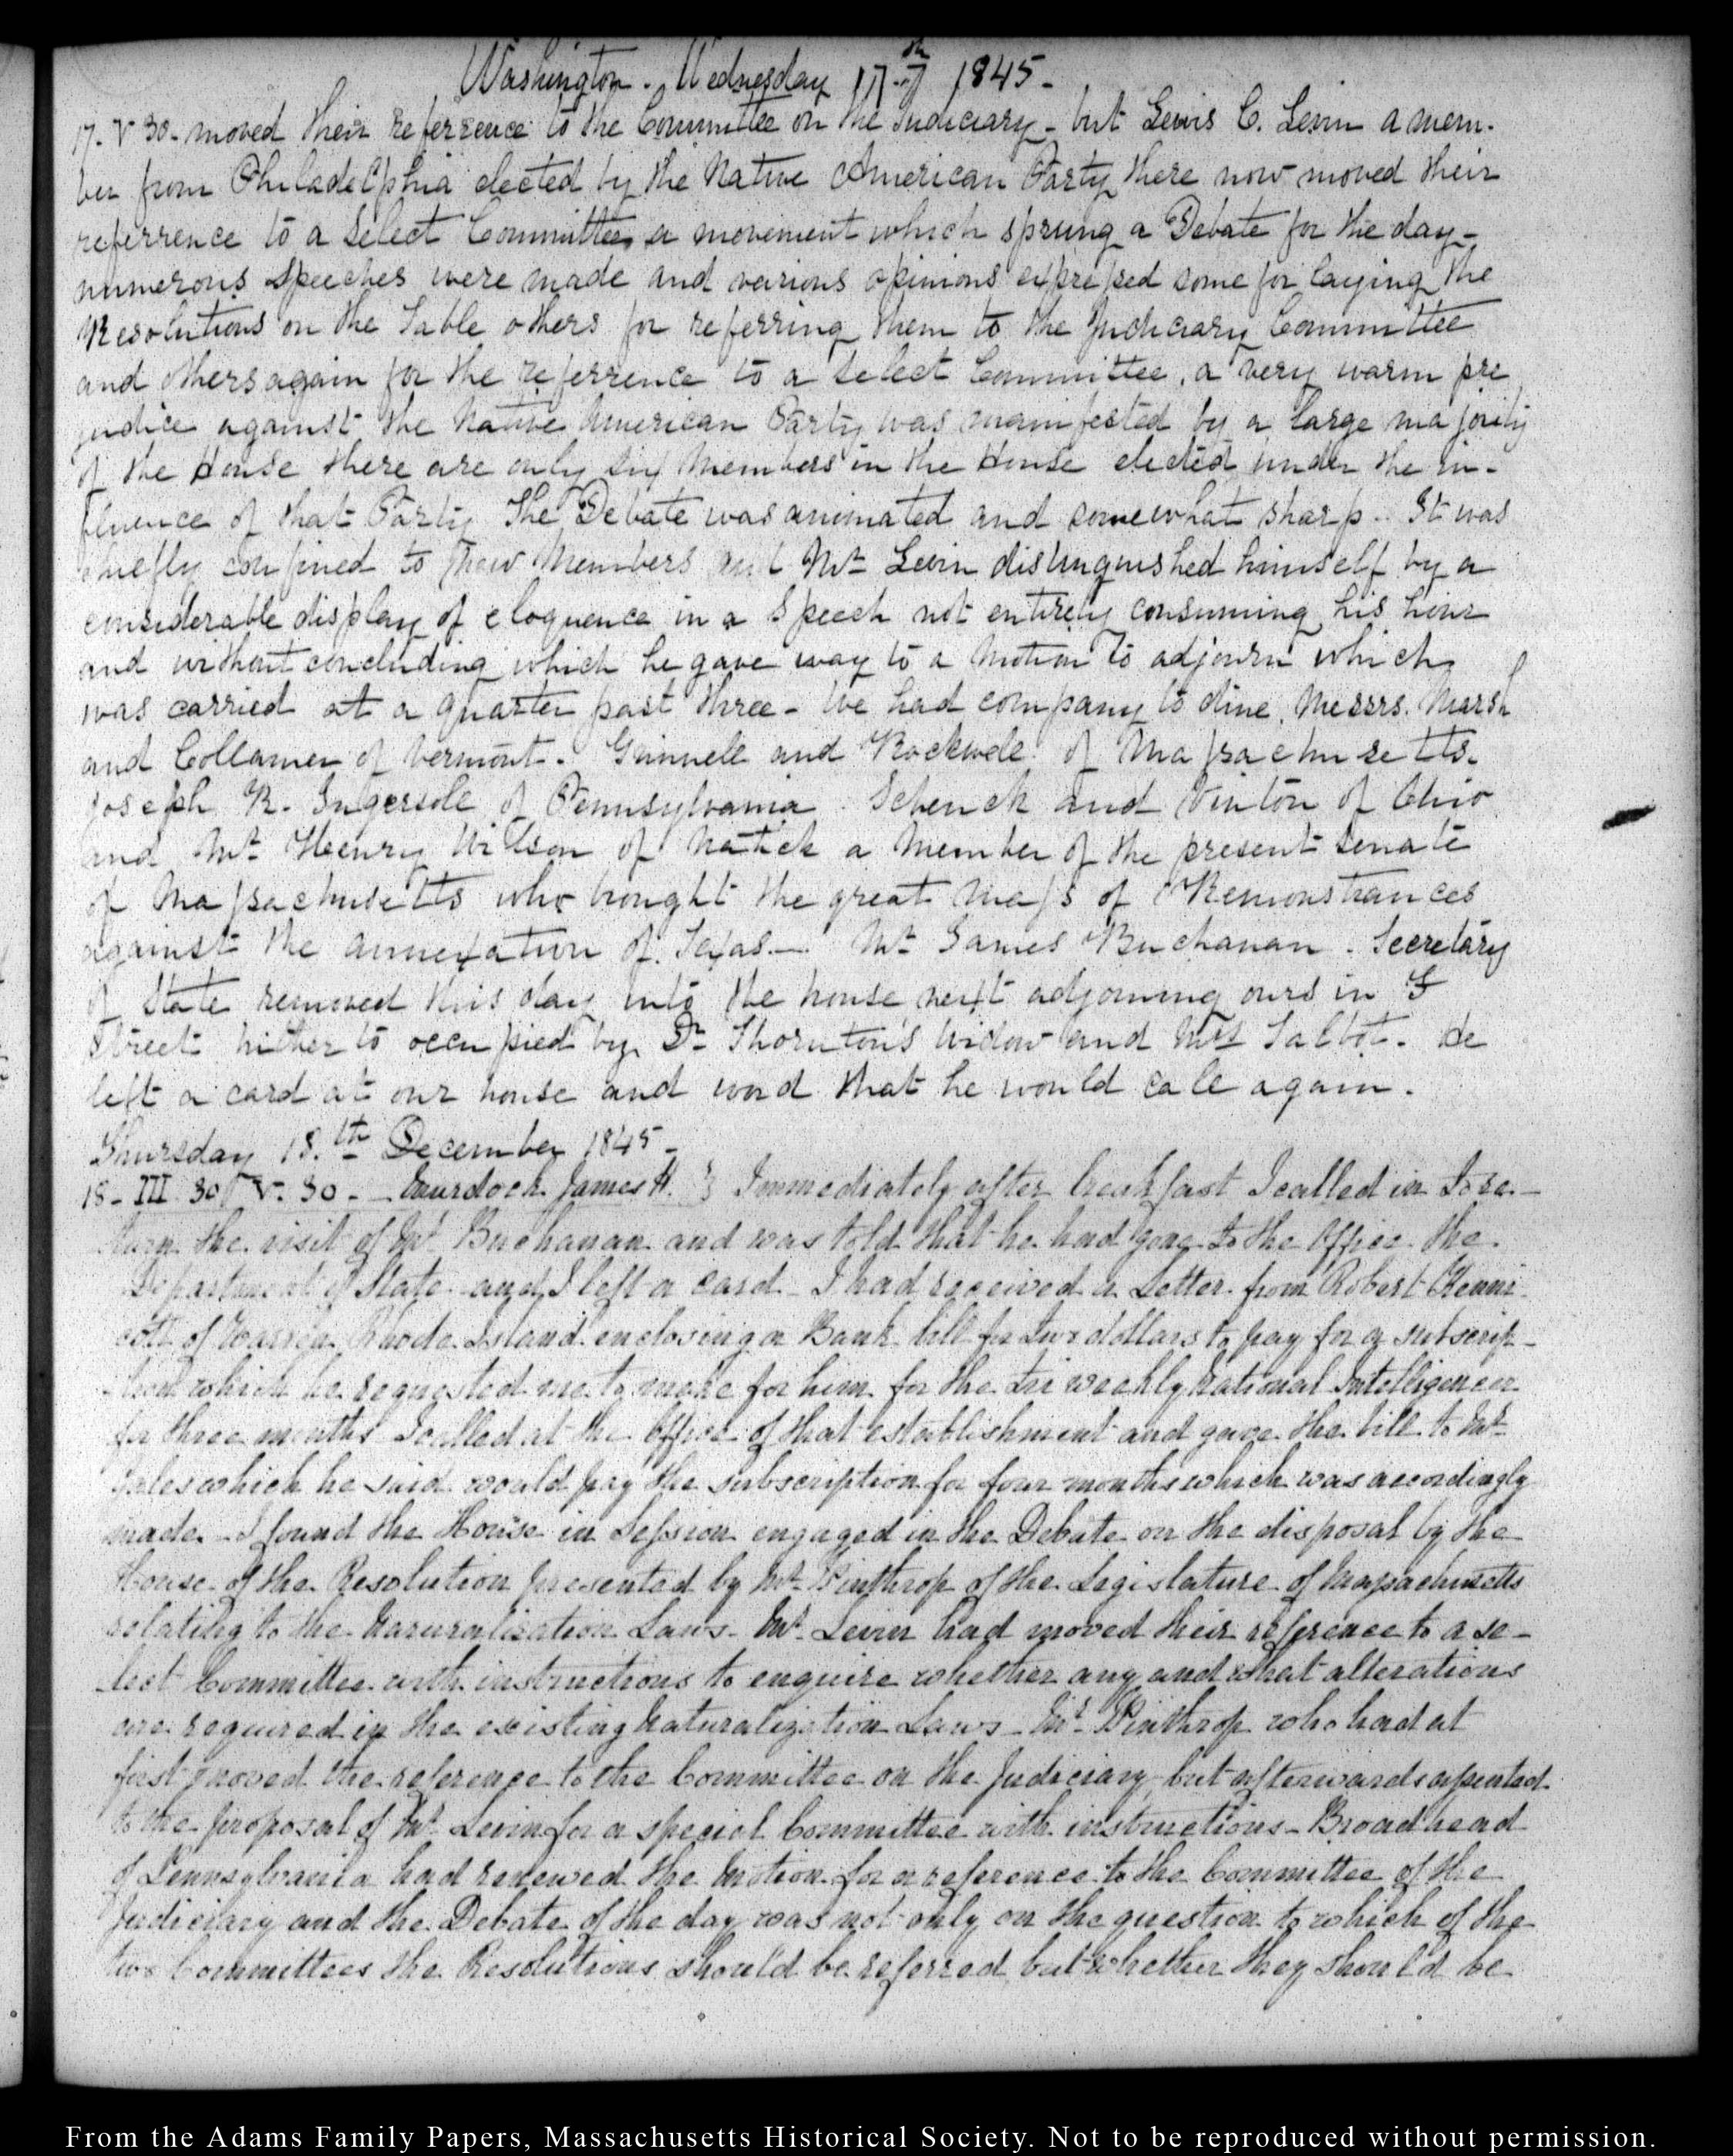 Washington. Wednesday 17th 1845-
17. V 30- moved their referrence to the Committee on the Judiciary- but Lewis C. Levin a mem-
ber from Philadelphia elected by the Native American Party there now moved their
referrence to a Select Committee, a movement which sprung a Debate for the day-
numerous speeches were made and various opinions expressed some for laying the
Resolutions on the Table others for referring them to the Judiciary Committee
and others again for the referrence to a Select Committee, a very warm pre
judice against the Native American Party was manifested by a large majority
of the House there are only six Members in the House elected under the in-
fluence of that Party The Debate was animated and somewhat sharp.. It was
chiefly confined to new Members and Mr Levin distinguished himself by a
considerable display of eloquence in a Speech not entirely consuming his hour
and without concluding which he gave way to a Motion to adjourn which
was carried at a quarter past three- We had company to dine, Messrs. Marsh
and Collamer of Vermont. Grinnell and Rockwell of Massachusetts.
Joseph R. Ingersoll of Pennsylvania. Schenck and Vinton of Ohio
and Mr Heenry Wilson of Natick a Member of the present Senate
of Massachusetts who brought the great Mass of Remonstrances
against the annexation of Texas.- Mr James Buchanan. Secretary
of State removed this day into the house next adjoining ours in F
Street hitherto occupied by Dr Thornton's Widow and Mrs Talbot. He
left a card at our house and word that he would call again.
Thursday 18.th December 1845-
18- III 30/ V. 30- Murdock James H. } Immediately after breakfast I called in to re-
turn the visit of Mr Buchanan and was told that he had gone to the Office the
Department of State and I left a card- I had received a Letter from Robert Kenni
cott of Warren Rhode Island enclosing a Bank bill for two dollars to pay for a subscrip-
tion which he requested me to make for him for the tri weekly National Intelligencer
for three months I called at the Office of that establishment and gave the bill to Mr
Gales which he said would pay the subscription for four months which was accordingly
made- I found the House in Session engaged in the Debate on the disposal by the
House of the Resolution presented by Mr Winthrop of the Legislature of Massachusetts
relating to the Naruralization Laws- Mr Levin had moved their reference to a se-
lect Committee with instructions to enquire whether any and what alterations
are required in the existing Naturalization Laws- Mr Winthrop who had at
first moved the reference to the Committee on the Judiciary but afterwards assented
to the proposal of Mr Levin for a special Committee with instructions- Broadhead
of Pennsylvania had renewed the Motion for a reference to the Committee of the
Judiciary and the Debate of the day was not only on the question to which of the
two Committees the Resolutions should be referred but whether they should be
From the Adams Family Papers, Massachusetts Historical Society. Not to be reproduced without permission.